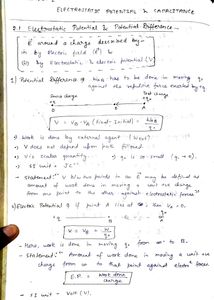 ELECTROSTATIC POTENTIAL & CAPACITANCE
2.1 Electrostatic Potential & Potential Difference -
E around a charge described by -
(i) by Electric field (E)
(ii) by Electrostatic & electric potential (V)
1) Potential Difference → WAB has to be done in moving q0
against the repulsive force exerted by q.
Source charge
Test charge
V = VB - VA (final - Initial) = WAB
q0
→ Work is done by external agent (Wext)
→ V does not depend upon path followed.
→ V is scalar quantity.
→ q0 is so small (q0 → 0).
→ SI unit = JC⁻¹
→ Statement: V b/w two points in the E may be defined as
amount of work done in moving a unit +ve charge
from one point to the other against electrostatic force
2) Electric Potential → If point A lies at ∞, then VA = 0.
V = VB = W
q0
- Here, work is done in moving q0 from ∞ to B.
- Statement: Amount of work done in moving a unit +ve
charge from ∞ to that point against electros. forces
E.P. = Work done
charge
- SI unit - Volt (V).